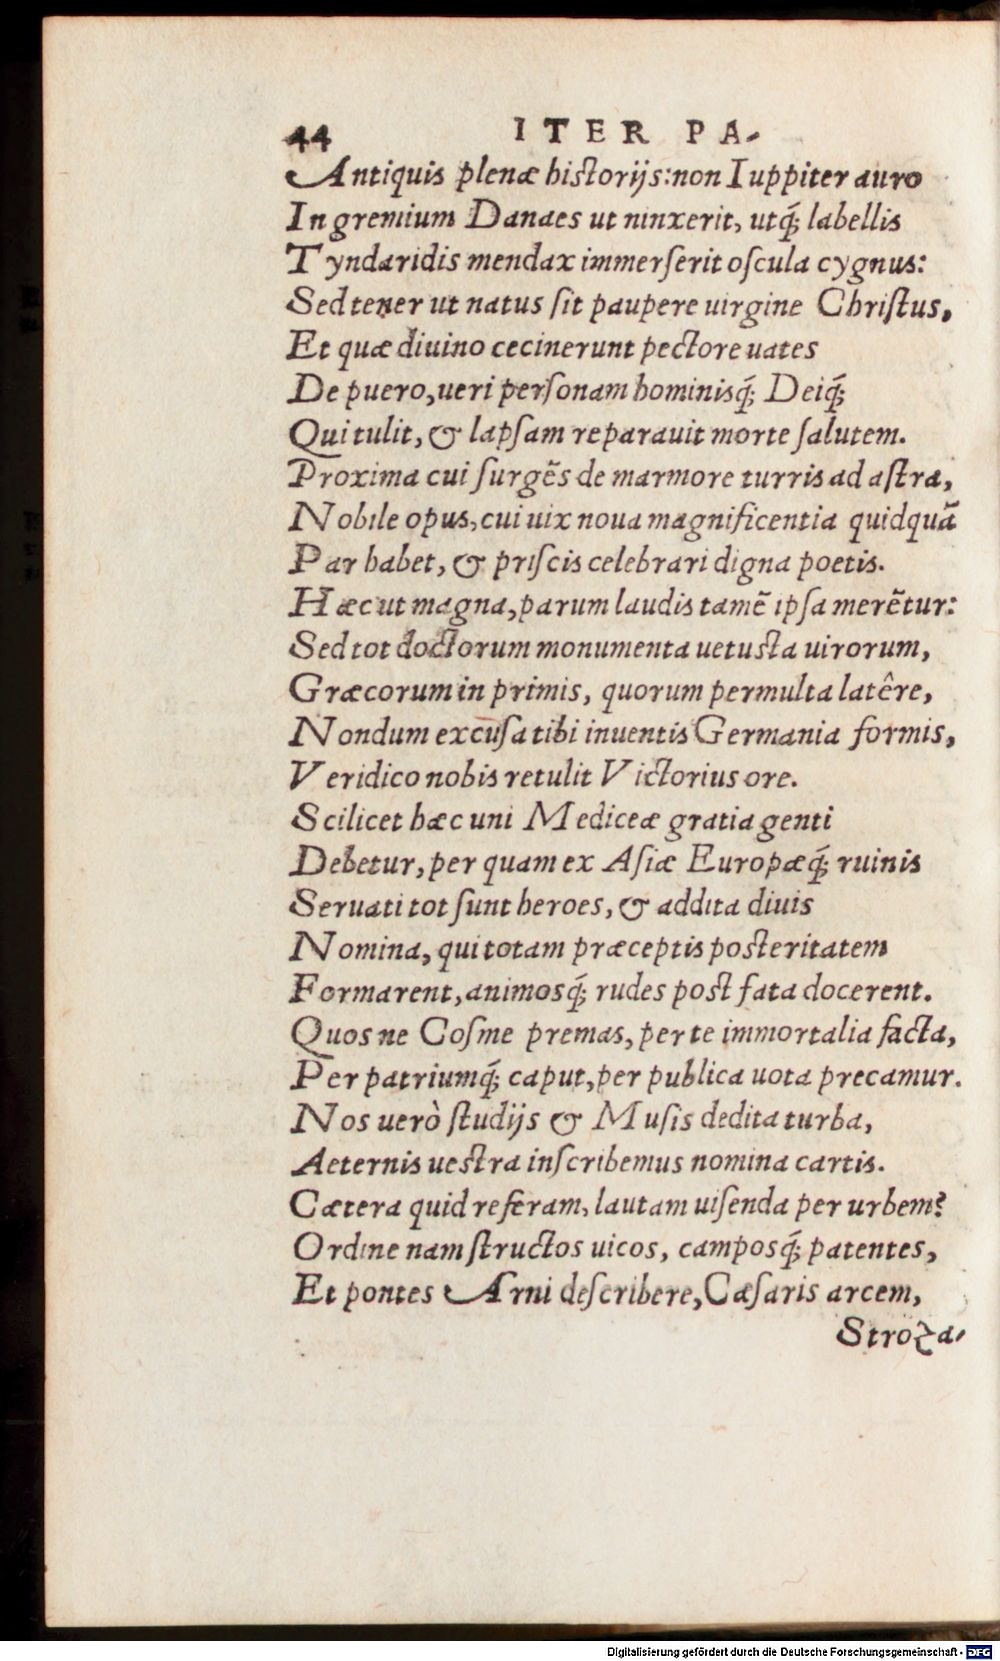 44 ITER PA-
Antiquis plenæ historijs: non Iuppiter auro
In gremium Danaes ut ninxerit, utq́; labellis
Tyndaridis mendax immerſerit oſcula cygnus:
Sed tener ut natus ſit paupere uirgine Chriſtus,
Et quæ diuino cecinerunt pectore uates
De puero, ueri perſonam hominisq́; Deiq́;
Qui tulit, & lapſam reparauit morte ſalutem.
Proxima cui ſurgẽs de marmore turris ad aſtra,
Nobile opus, cui uix noua magnificentia quidquã
Par habet, & priſcis celebrari digna poetis.
Hæc ut magna, parum laudis tamẽ ipſa merẽtur:
Sed tot doctorum monumenta uetusta uirorum,
Græcorum in primis, quorum permulta latêre,
Nondum excuſa tibi inuentis Germania formis,
Veridico nobis retulit Victorius ore.
Scilicet hæc uni Mediceæ gratia genti
Debetur, per quam ex Aſiæ Europæq́; ruinis
Seruati tot ſunt heroes, & addita diuis
Nomina, qui totam præceptis posteritatem
Formarent, animosq́; rudes post fata docerent.
Quos ne Coſme premas, per te immortalia facta,
Per patriumq́; caput, per publica uota precamur.
Nos uerò ſtudijs & Muſis dedita turba,
Aeternis uestra inſcribemus nomina cartis.
Cætera quid referam, lautam uiſenda per urbem?
Ordine nam ſtructos uicos, camposq́; patentes,
Et pontes Arni deſcribere, Cæſaris arcem,
Stroza-
Digitalisierung gefördert durch die Deutsche Forschungsgemeinschaft - DFG